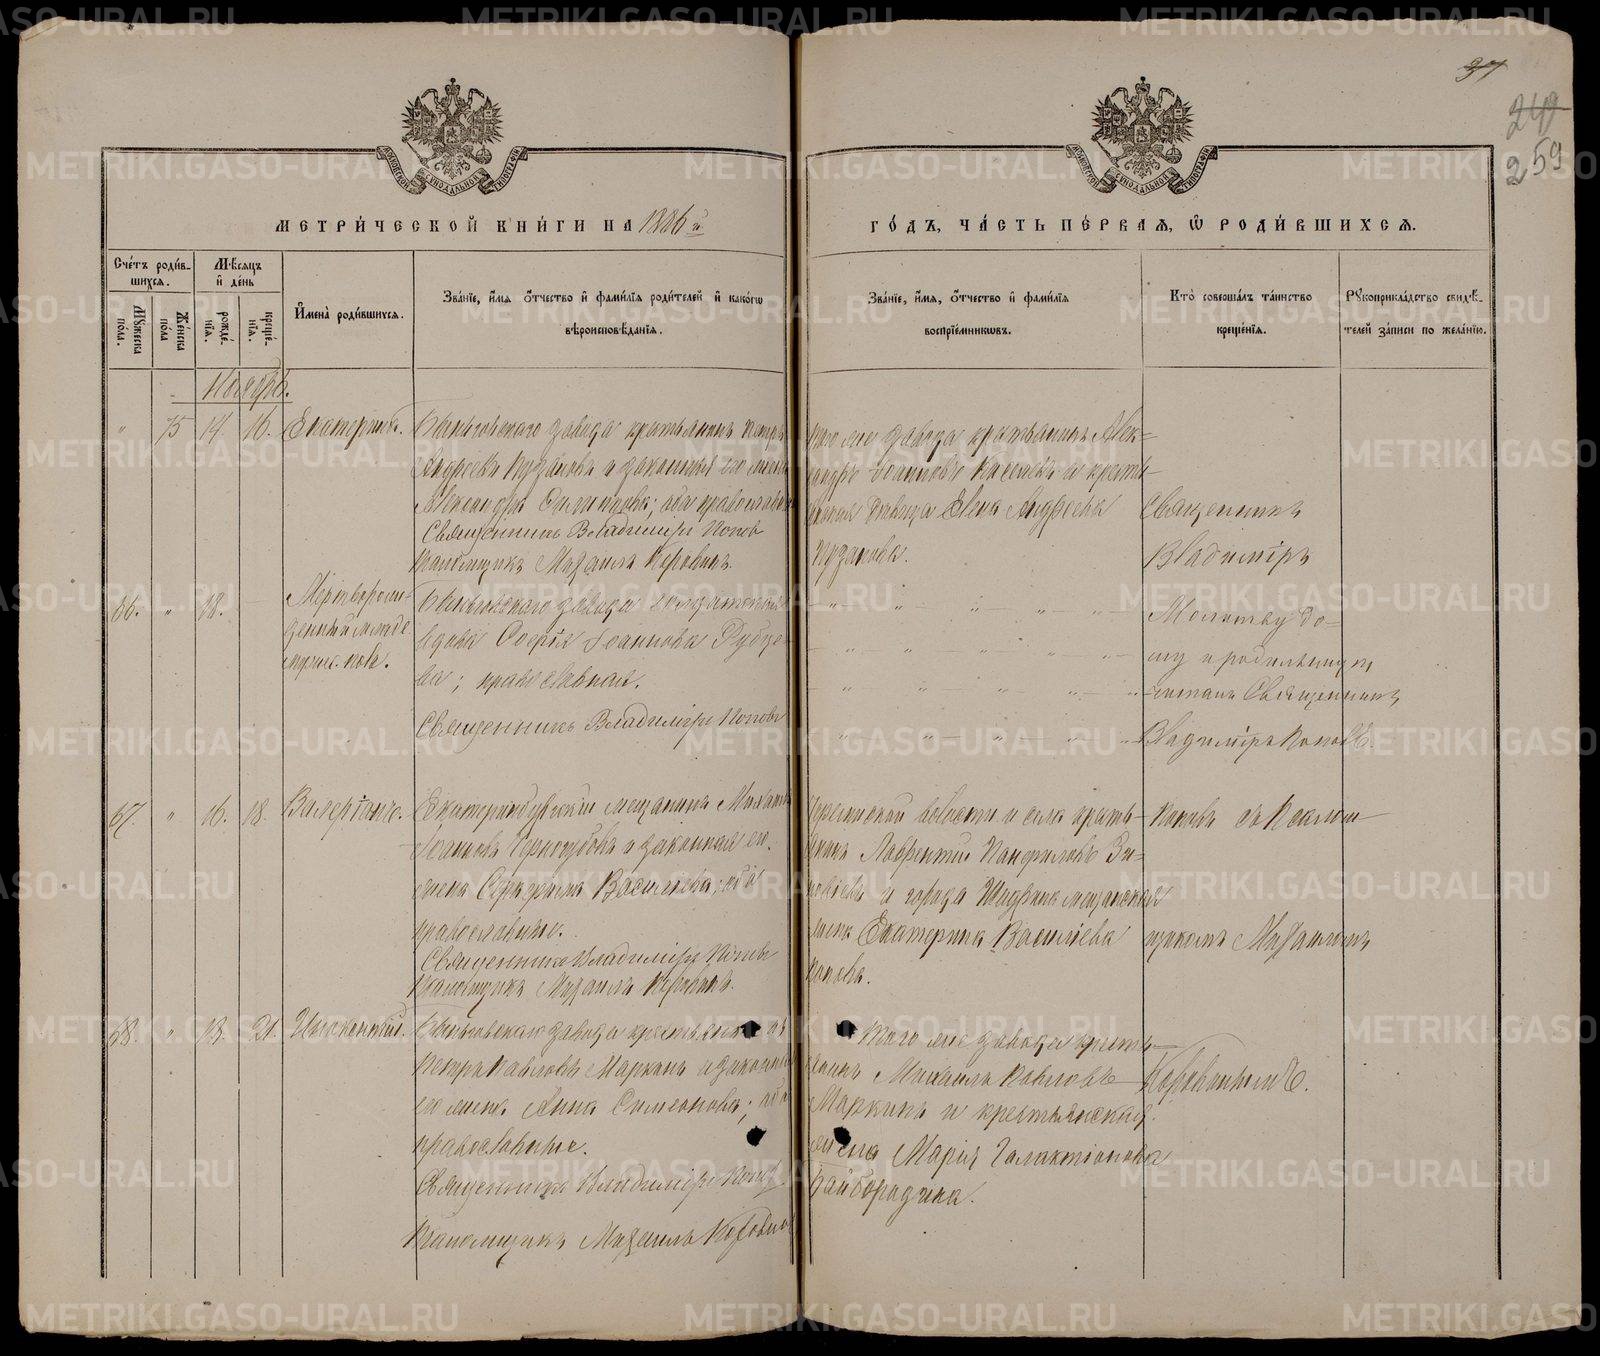 37
249
259
МЕТРИ́ЧЕСКОЙ КНИ́ГИ НА 1886 й
ГО́ДЪ, ЧА́СТЬ ПЕ́РВАЯ, Ѡ РОДИ́ВШИХСЯ.
Сче́тъ роди́в-
шихся.
Му́жеска по́ла.
Же́нска по́ла
Мѣсяцъ
и де́нь
рожде́-
нія.
креще́-
нія.
И҆мена̀ роди́вшихся.
Зва́ніе, и҆́мя о҆́тчество и҆ фами́лія роди́телей и҆ како́гѡ
вѣроисповѣ́данія.
Зва́ніе, и҆́мя, о҆́тчество и҆ фами́лія
воспріе́мникѡвъ.
Кто̀ соверша́лъ та́инство
креще́нія.
Рꙋкоприкла́дство свидѣ́-
телей за́писи по жела́нію.
Ноябрь.
" 75 14 16. Екатерина.
Быньговскаго завода крестьянинъ Петръ
Андреевъ Пузановъ и законная его жена
Александра Филиппова; оба православные
Священникъ Владиміръ Поповъ
Псаломщикъ Михаилъ Коровинъ.
Того же завода крестьянинъ Алек-
сандръ
дѣвица Елена Андреева
Пузанова.
Священникъ
Владиміръ
66. " 18. Мертворож-
денный младе-
нецъ муж. пола.
Быньговскаго завода солдатская
вдова Софія Іоаннова Рубцо-
ва; православная.
Священникъ Владиміръ Поповъ
Молитву до-
му и родильницѣ
читалъ Священникъ
Владиміръ Поповъ.
67. " 16. 18. Валеріанъ.
Екатеринбургскій мѣщанинъ Михаилъ
Іоанновъ Черногубовъ и законная его
жена Серафима Васильева; оба
православные.
Священникъ Владиміръ Поповъ
Псаломщикъ Михаилъ Коровинъ.
волости и села кресть-
янинъ Лаврентій Панфиловъ Зи-
новьевъ и города Шадринска мѣщанская
жена Екатерина Васильева
Попова.
Поповъ съ Псалом-
щикомъ Михаиломъ
68. " 18. 21. Иннокентій.
Быньговскаго завода крестьянинъ
Петръ Павловъ Маркинъ и законная
его жена Анна Симеонова; оба
православные.
Священникъ Владиміръ Поповъ
Псаломщикъ Михаилъ Коровинъ
Того же завода кресть-
янинъ Михаилъ Павловъ
Маркинъ и крестьянская
жена Марія Галактіонова
Байбородина.
Коровинымъ.
METRIKI.GASO-URAL.RU